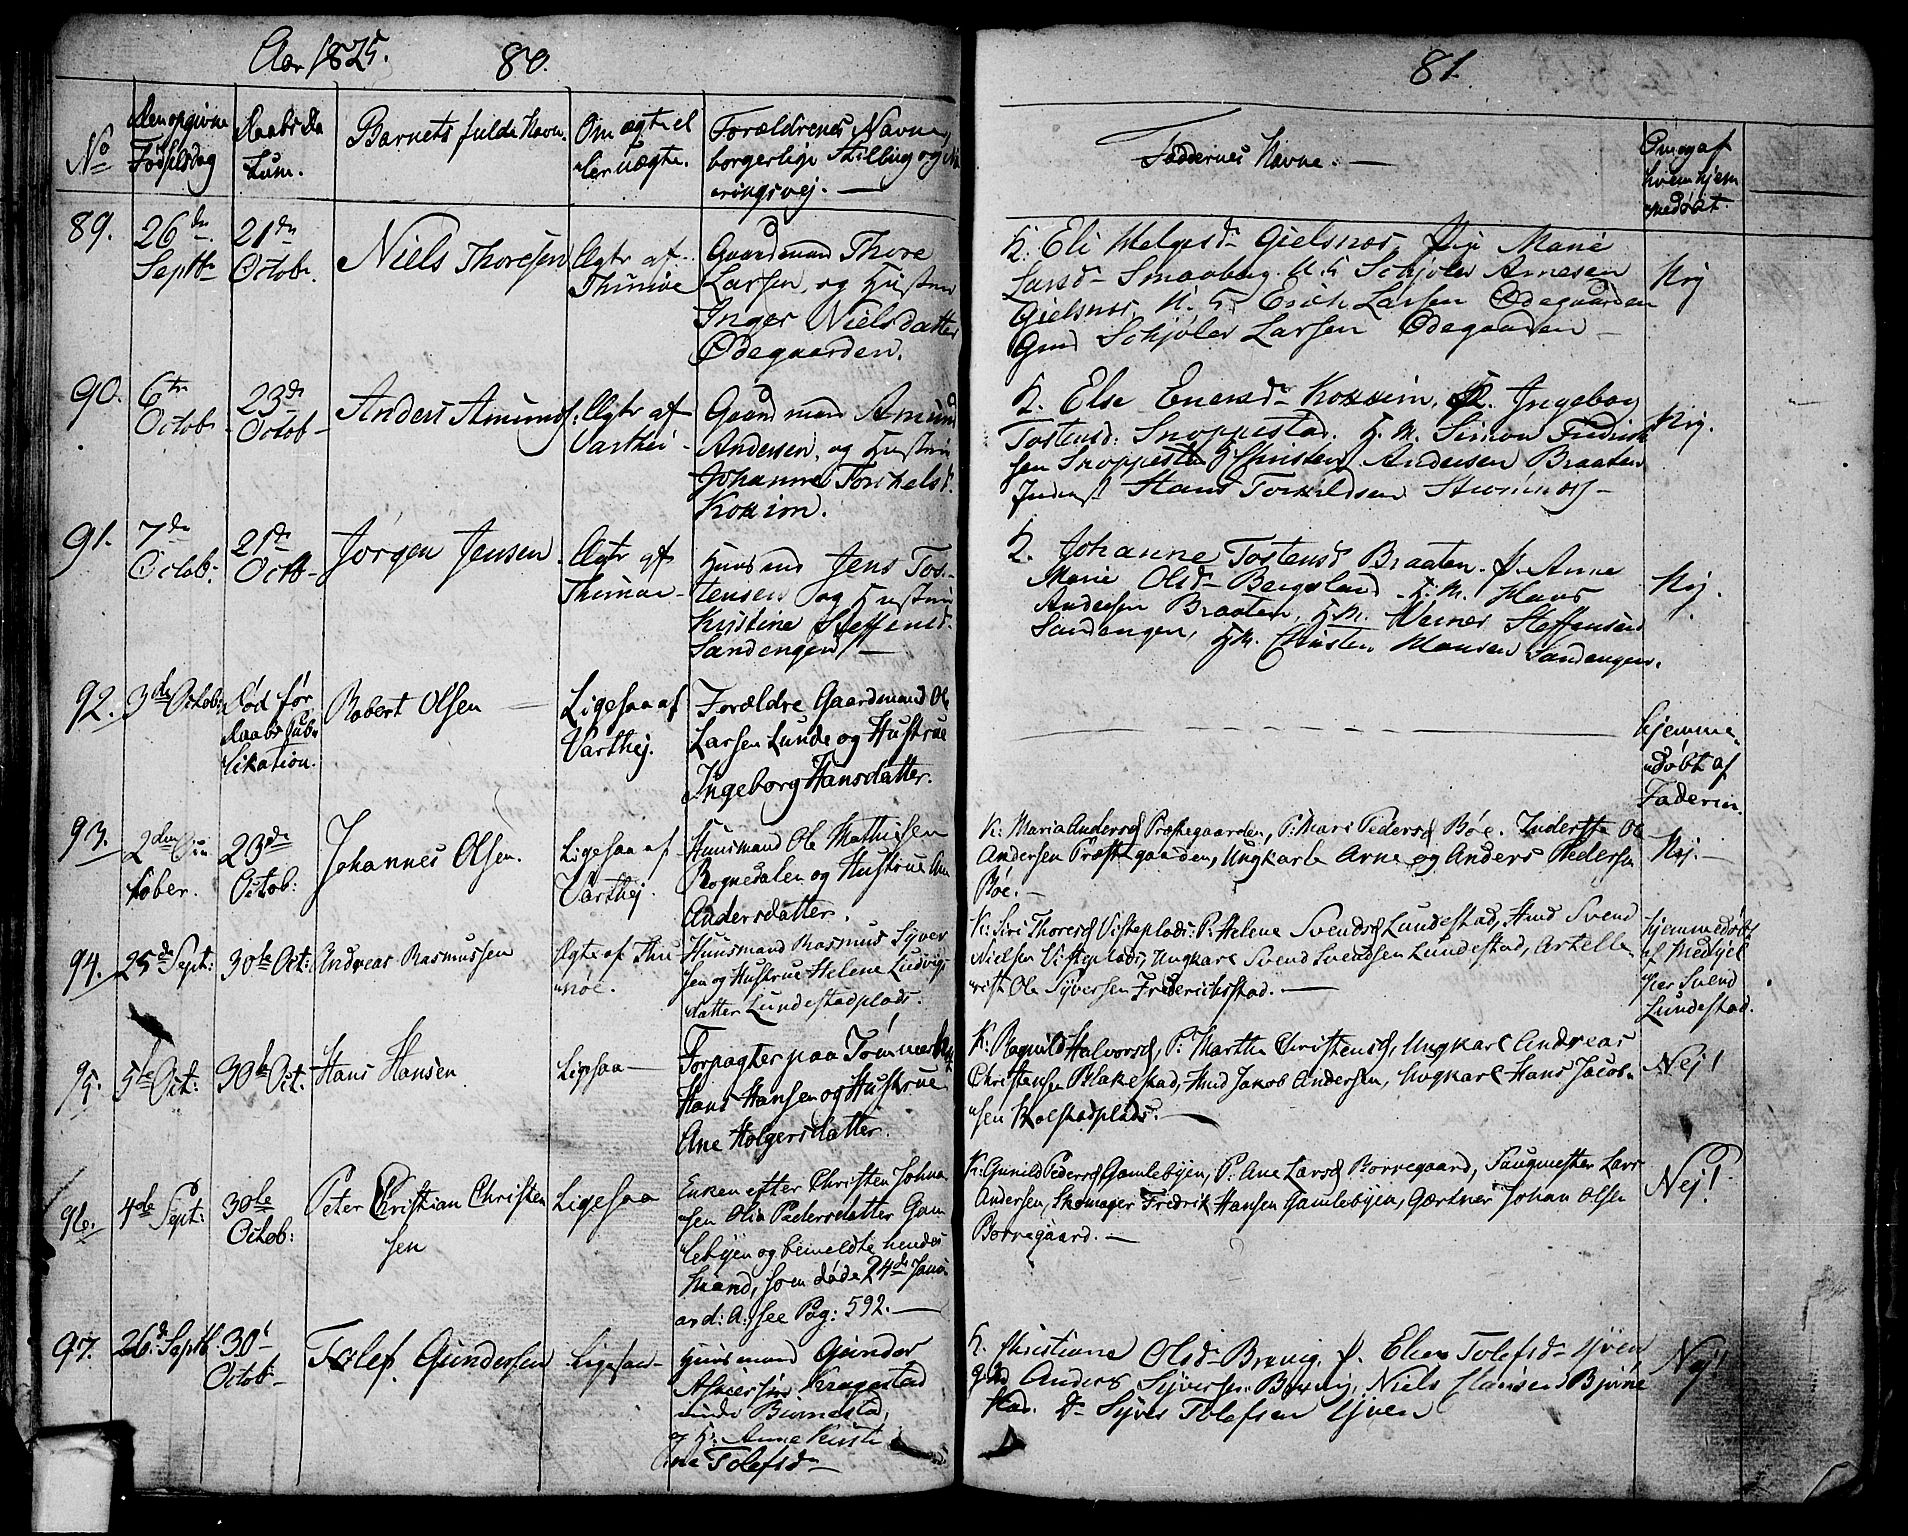 Aar 1825.
80.
No
Den opgivne Fødselsdag
Daabs Da
tum.
Barnets fulde Navn.
Om ægte el
ler uægte.
Forældrenes Navne,
borgerlige Stilling og Næ
ringsvej. —
89.
26de
Septbr
21de
Octob.
Niels Thoresen
Ægte af
Thimøe
Gaardmand Thore
Larsen, og Hustrue
Inger Nielsdatter
Ødegaarden.
90.
6te
Octob
23de
Octob
Anders Amunds.
Ægte af
Varthei
Gaardmand Amund
Andersen, og Hustrue
Johanne Torkelsd.
Kokkim.
91.
7de
Octob.
21de
Octb
Jørgen Jensen
Ægte af
Thimøe
Huusmd Jens Tos-
tensen og Hustrue
Kristine Steffensd.
Sandengen
92.
3de Octob:
Død før
Daabs Pub-
likation.
Robert Olsen
Ligesaa af
Varthej.
Forældre Gaardmand Ole
Larsen Lunde og Hustrue
Ingeborg Hansdatter.
93.
2den Oc
tober.
23de
Octob:
Johannes Olsen.
Ligesaa af
Varthej.
Huusmand Ole Mathisen
Rognedalen og Hustrue An
Andersdatter.
94.
25de Sept:
30te Oct:
Andreas Rasmussen
Ægte af Thi
møe.
Huusmand Rasmus Syver
sen og Hustrue Helene Ludvigs
datter Lundestadplads.
95.
5te Oct:
30te Oct:
Hans Hansen
Ligesaa
Forpagter paa
Hans Hansen og Hustrue
Ane Holgersdatter.
96.
4de Sept:
30te
Octob:
Peter Christian Christen
sen
Ligesaa
Enken efter Christen Johna
sen Olia Pedersdatter Gam
lebyen og bemeldte hendes
Mand, som døde 24de Janu
ar d: A: see Pag: 592. —
97.
26de Septb
30te
Octob
Tolef Gundersen
Ligesaa
Huusmand Gunder
Kragestad
og H: Anne Kirsti
Tolefsd
81.
Faddernes Navne. —
Om og af
hvem hjem
medøbt.
K. Eli Helgesd Gielsnøs, Pige Marie
Larsd Smaaberg. U. K. Schjøler Arnesen
Gielsnøs, U. K. Erich Larsen Ødegaarden
Gmd Schjøler Larsen Ødegaarden
Nej
K. Else Enersd Kokkim, P. Ingebog
Tostensd: Snoppestad. H. M. Simon Fredrik
sen Snoppestad Christen Andersen Braaten
Inderst Hans Torkildsen
Nej.
K. Johanne Tostensd Braaten. P. Anne
Marie Olsd Bergsland. H. M. Hans
Andersen Braaten, H. M. Werner Steffensen
Sandengen, H M. Christen Hansen Sandengen.
Nej.
hjemme-
døbt af
Faderen
K: Maria Andersd Præstegaarden, P: Mari Pedersd Bøe. Inderste Ole
Andersen Præstegaarden, Ungkarle Arne og Anders Pedersen
Bøe. —
Nej. —
K: Siri Thoresd Visteplads: P: Helene Svendsd Lundestad, Hmd Svend
Nielsen Visteplads, Ungkarl Svend Svendsen Lundestad, Artelle
rist Ole Syversen Friderichsstad. —
hjemmedøbt
af Medhjel
per Svend
Lundestad.
K: Ragnild Halvorsd, P: Marthe Christensd, Ungkarl Andreas
Christensen Blakestad, Hmd Jakob Andersen, Ungkarl Hans Jacob-
sen Kolstadplads. —
Nej!
K: Gunild Pedersd Gamlebyen, P: Ane Larsd Borregaard, Saugmester Lars
Andersen, Skomager Fredrik Hansen Gamlebyen, Gærtner Johan Olsen
Borregaard. —
Nej!
K. Christiane Olsd Brevig, P. Elen Tolefsd Hiven
Gmd Anders Syversen Brevig, Niels Hansen Bjørne
stad. Do Syver Tolefsen Hiven
Nej!